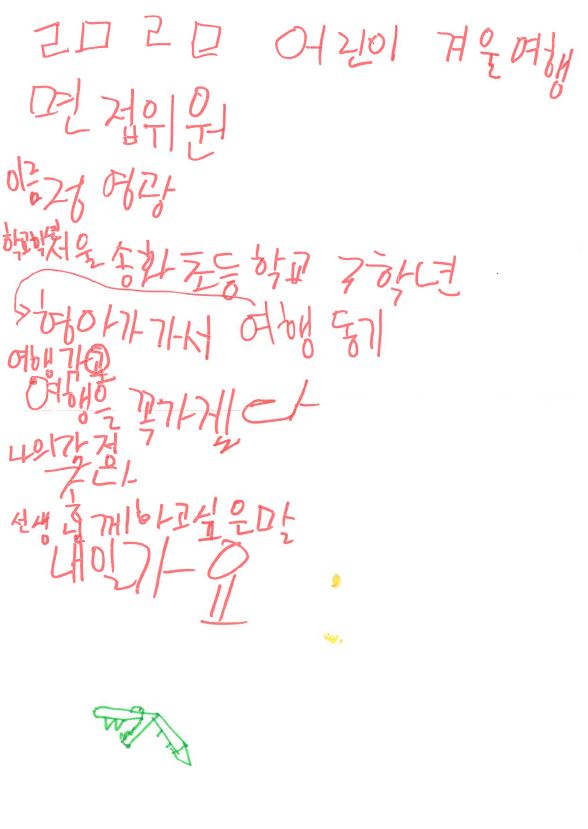 2020 어린이 겨울여행
면접위원
이름 정영광
학교학년 서울송화초등학교 3학년
형아가가서 여행 동기
여행각오
여행을 꼭가겠다
나의강점
웃다
선생님께하고싶은말
내일가요